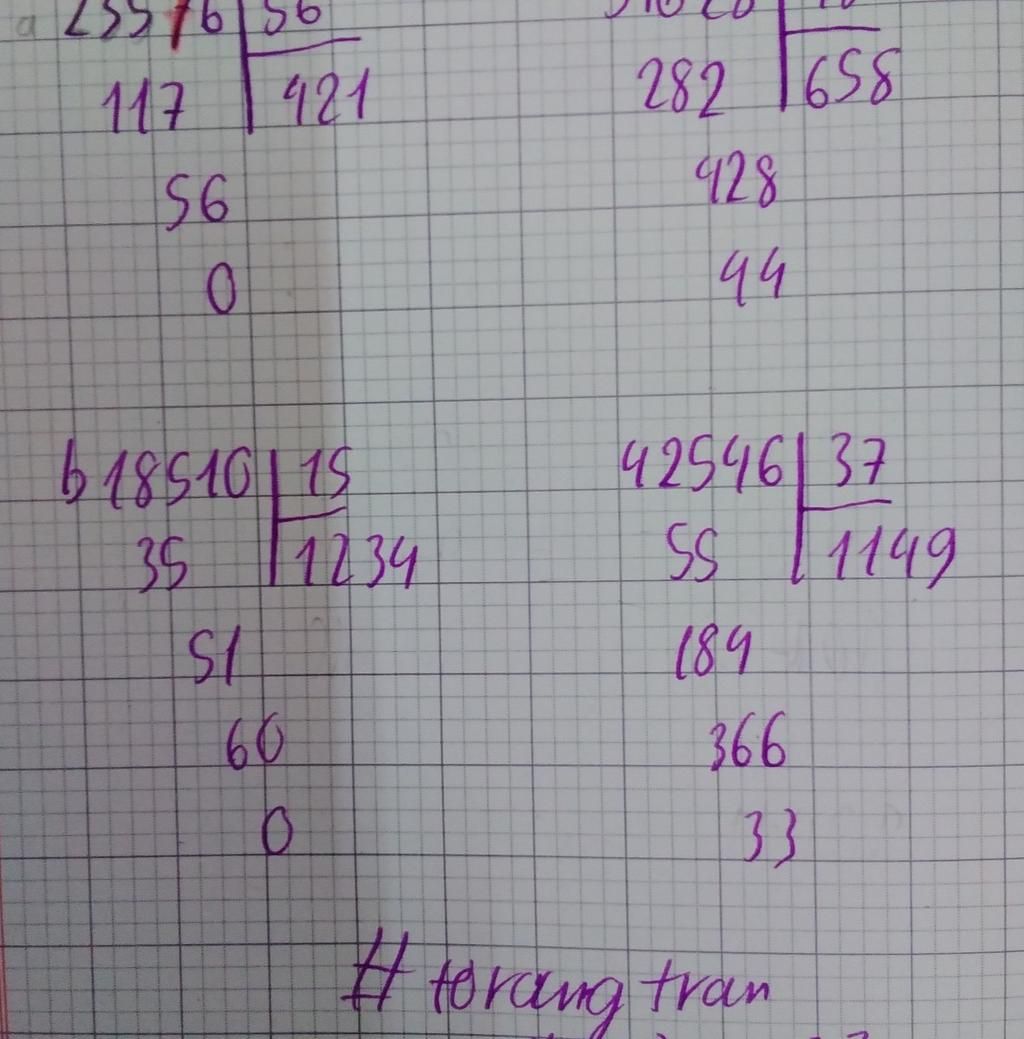 a 23576 56
117 421
282 658
56
428
0
44
b 18510 15
42546 37
35 1234
55 1149
51
184
60
366
0
33
# torang tran